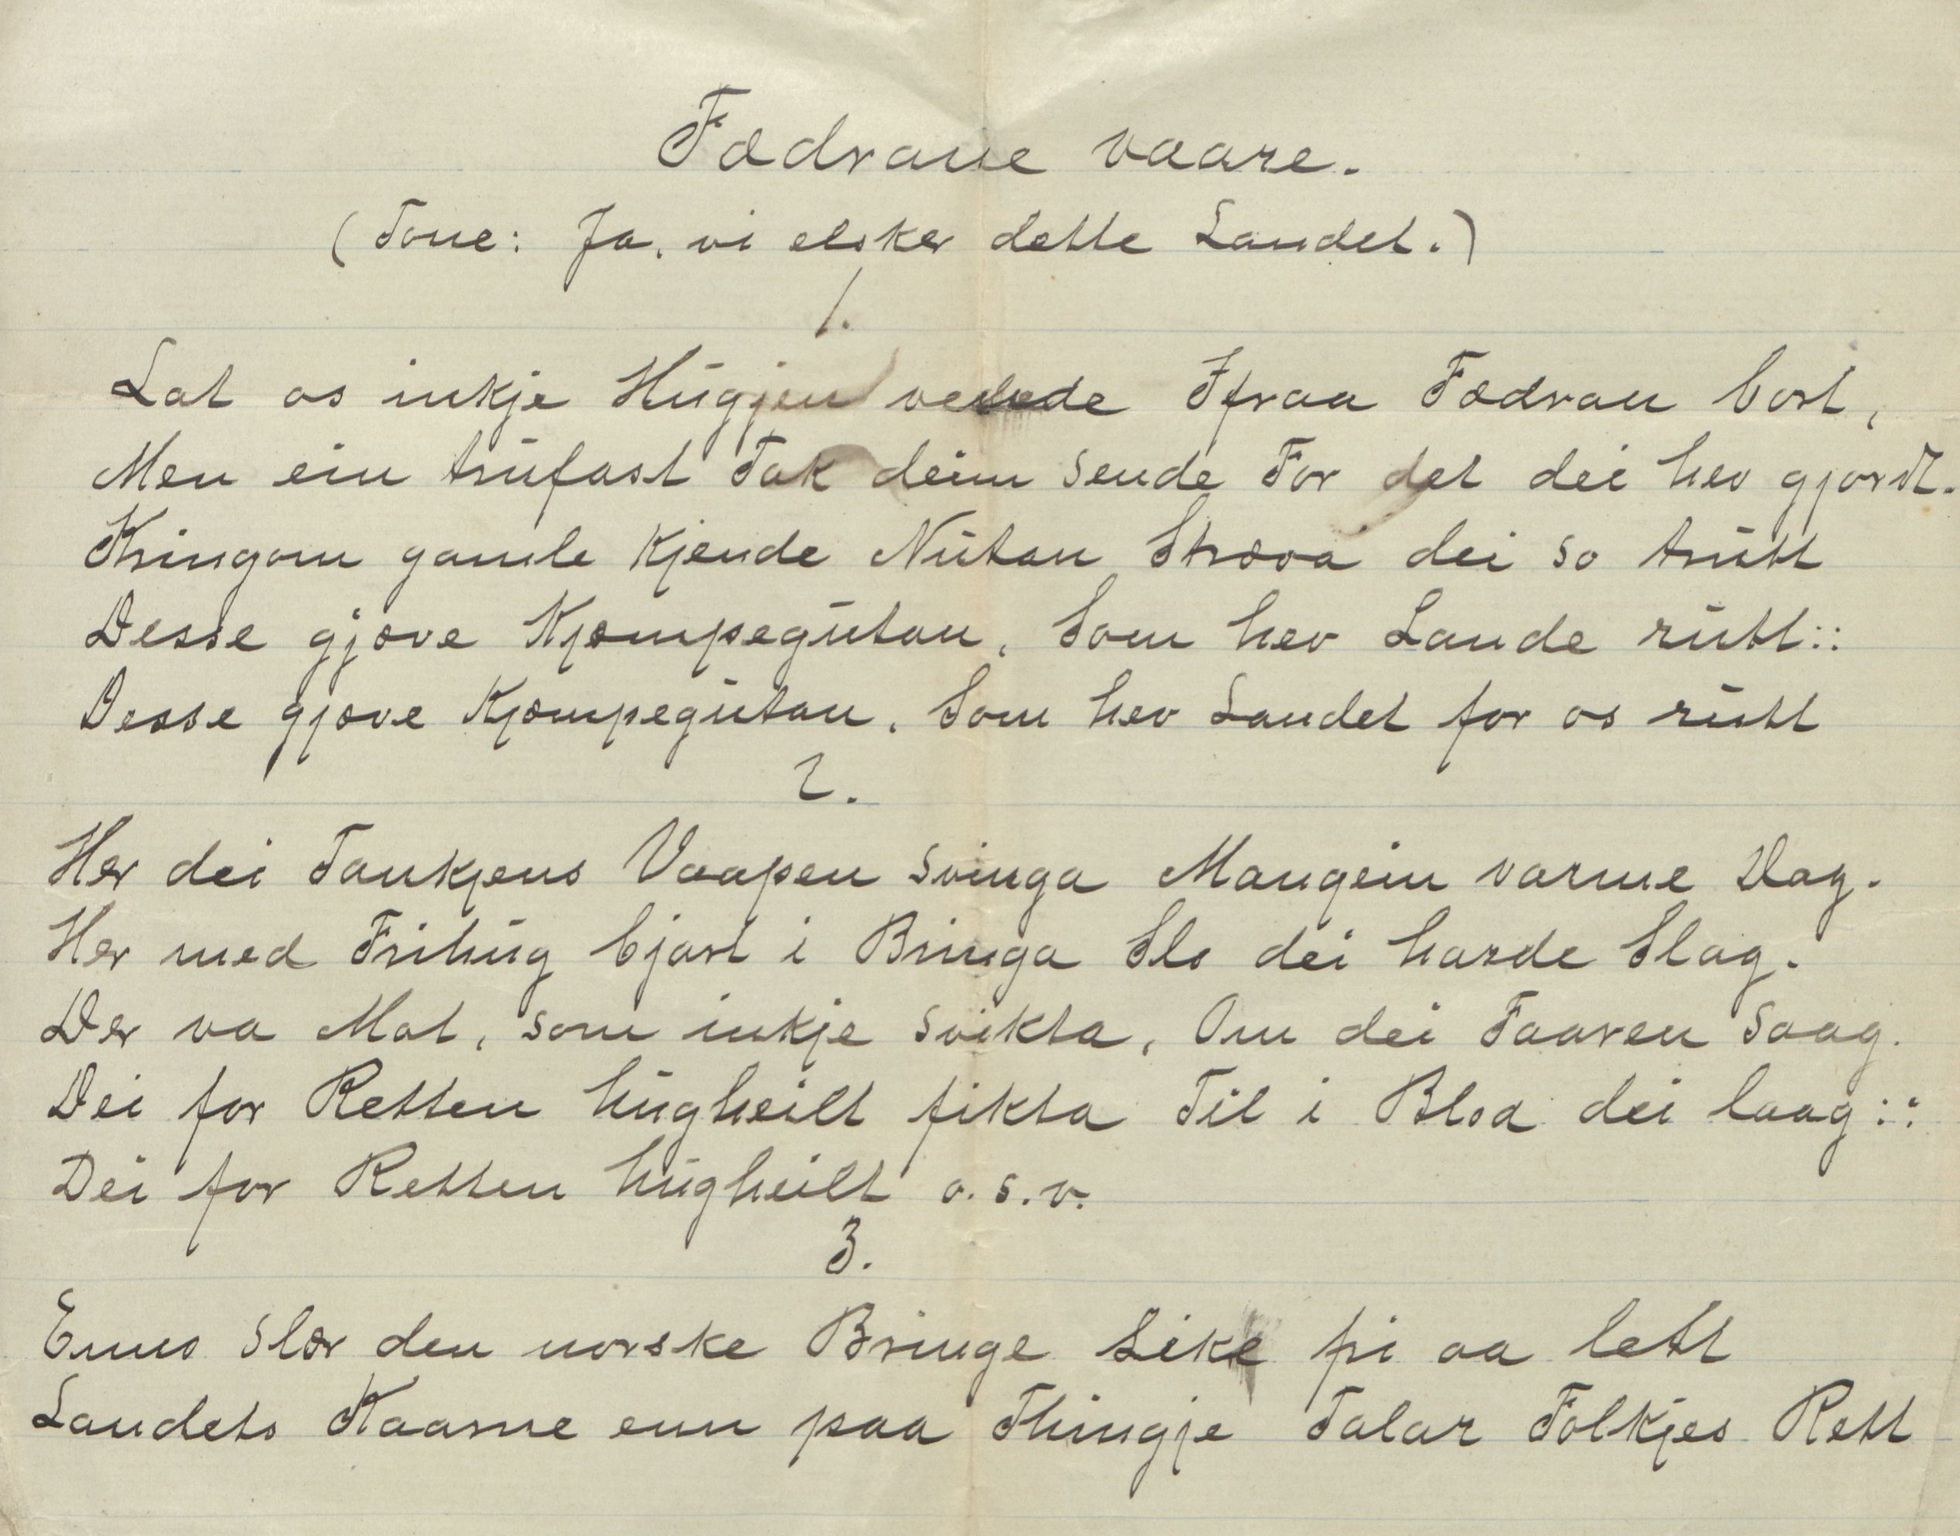 Fædrane vaare.
(Tone: Ja, vi elsker dette Landet.)
1.
Lat os inkje Hugjen vende Ifraa Fædran bort,
Men ein trufast Tak deim sende For det dei hev gjordt.
Kringom gamle kjende Nutan Stræva dei so trutt
Desse gjæve Kjæmpegutan, Som hev Lande rutt::
Desse gjæve Kjæmpegutan, Som hev Landet for os rutt
2.
Her dei Tankjens Vaapen svinga Mangein varme Dag.
Her med Frihug bjart i Bringa Slo dei harde Slag.
Der va Mot, som inkje svikta, Om dei Faaren saag.
Dei for Retten hugheilt fikta Til i Blod dei laag::
Dei for Retten hugheilt o.s.v.
3.
Enno slær den norske Bringe Like fri aa lett
Landets Kaarne enn paa Thingje Talar Folkjes Rett